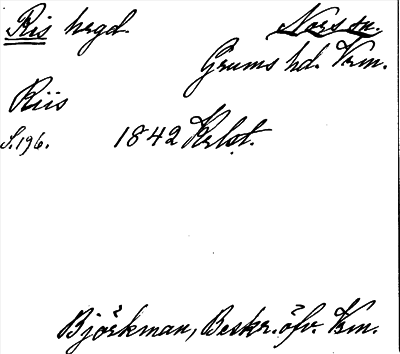 Ris hrgd. Nors sn.
Grums hd. Vrm.
Riis
S. 196. 1842 Krlst.
Björkman, Beskr. öfv. Vrm.